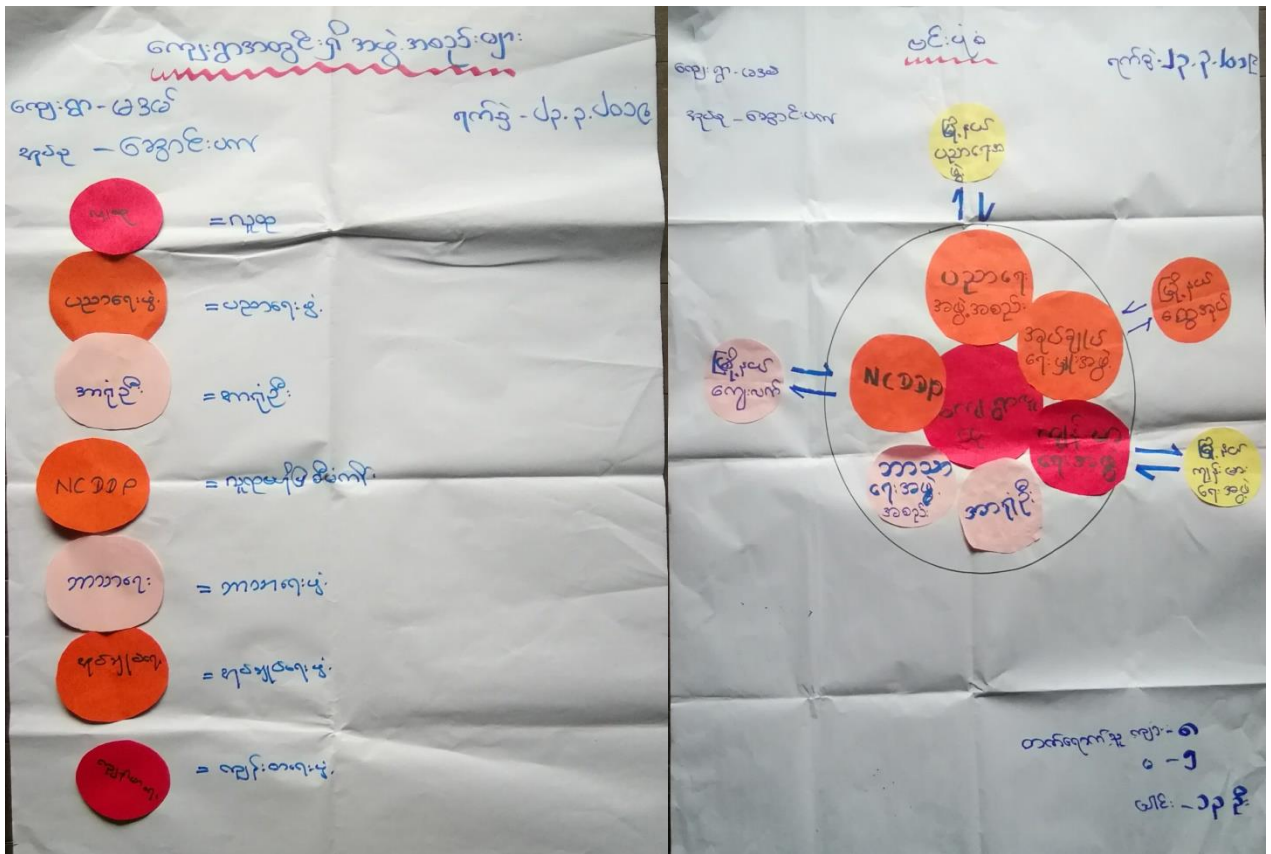 ကျေးရွာအတွင်းရှိ အဖွဲ့အစည်းများ
ကျေးရွာ -
အုပ်စု - အောင်းပက
ရက်စွဲ - ၂၃.၃.၂၀၁၉
လူထု
= လူထု
ပညာရေးဖွဲ့
= ပညာရေးဖွဲ့
အာရုံဦး
= အာရုံဦး
NCDDP
= လူထုဗဟိုပြုစီမံကိန်း
ဘာသာရေး
= ဘာသာရေးဖွဲ့
အုပ်ချုပ်ရေး
= အုပ်ချုပ်ရေးဖွဲ့
= ကျန်းမာရေးဖွဲ့
ဗင်းပုံစံ
ကျေးရွာ -
ရက်စွဲ - ၂၃.၃.၂၀၁၉
အုပ်စု - အောင်းပက
မြို့နယ်
ပညာရေးအ
ဖွဲ့
ပညာရေး
အဖွဲ့အစည်း
မြို့နယ်
ထွေအုပ်
အုပ်ချုပ်
ရေးမှူးအဖွဲ့
မြို့နယ်
ကျေးလက်
NCDDP
ကျေးရွာလူ
ထု
ကျန်းမာ
ရေးအဖွဲ့
မြို့နယ်
ကျန်းမား
ရေးအဖွဲ့
ဘာသာ
ရေးအဖွဲ့
အစည်း
အာရုံဦး
တက်ရောက်သူ ကျား - ၈
မ - ၅
ပေါင်း - ၁၃ ဦး